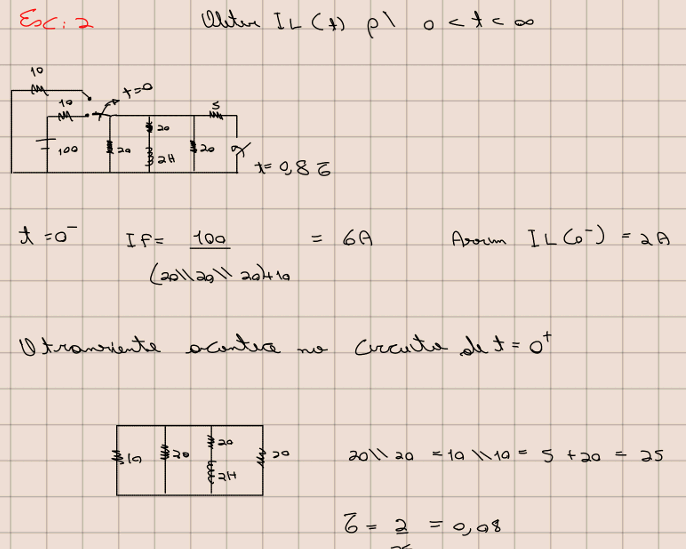 Esc: 2 Obter IL(t) p\ 0 < t < ∞
10
t=0
10
5
20
100 20 2H 20
t= 0,8 τ
t = 0⁻ If = 100 / (20\\20\\20)+10 = 6A Assim IL(0⁻) = 2A
O transiente acontece no circuito de t = 0⁺
20
10 20 2H 20
20\\20 = 10\\10 = 5 + 20 = 25
τ = 2 = 0,08